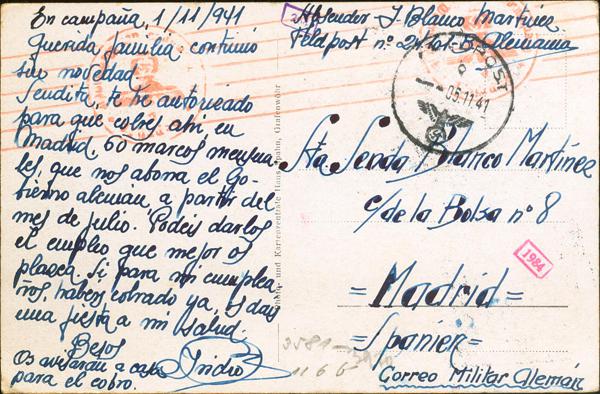 En campaña, 1/11/941
Querida familia continúo
sin novedad.
Sendita, te he autorizado
para que cobres ahí, en
Madrid, 60 marcos mensua-
les, que nos abona el Go-
bierno alemán a partir del
mes de julio. Podéis darlos
el empleo que mejor os
plazca. Si para mi cumplea-
ños, habéis cobrado ya, os dais
una fiesta a mi salud.
Besos
Isidro
Os avisarán a casa
para el cobro.
Absender J. Blanco Martínez
Feldpost nº Alemania
FELDPOST
05.11.41
Sta Senda Blanco Martínez
c/ de la Bolsa nº 8
1984
=Madrid=
=Spanien=
Correo Militar Alemán
und Kartenzentrale Hans Spahn, Grafenwöhr
3581
1166